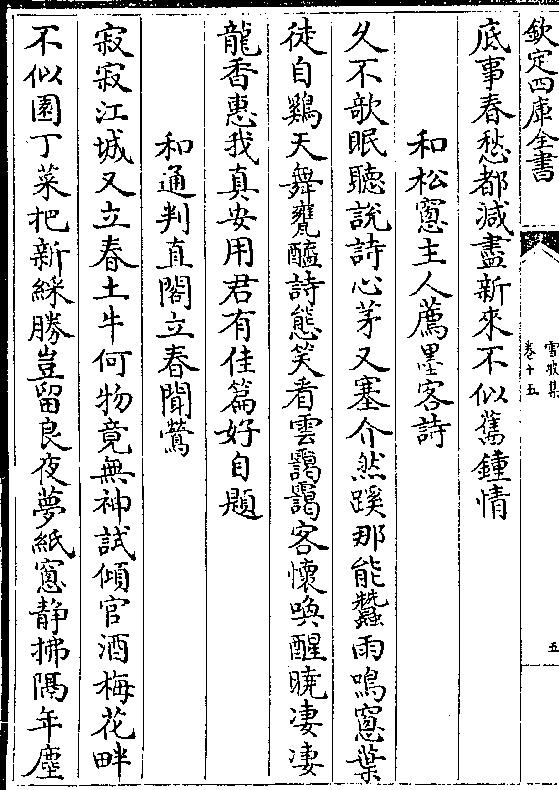 欽定四庫全書
雪坡集
卷十五
五
底事春愁都減盡新來不似舊鍾情
和松窻主人薦墨客詩
久不歌眠聽說詩心茅又塞介然蹊那能蠶雨鳴窻葉
徒自鷄天舞甕醯詩態笑看雲靄靄客懷喚醒曉凄凄
龍香惠我真安用君有佳篇好自題
和通判直閣立春聞鶯
寂寂江城又立春土牛何物竟無神試傾官酒梅花畔
不似園丁菜把新綵勝豈留良夜夢紙窻静拂隔年塵